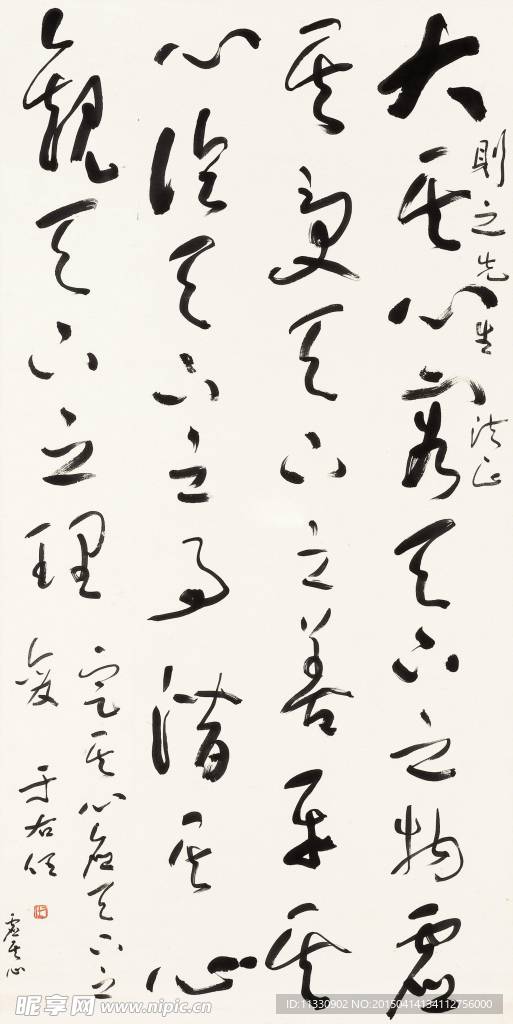 則之先生 法正
大其心容天下之物虛
其受天下之善平其
心論天下之事潛其心
觀天下之理
定其心應天下之
變 于右任
虛其心
昵享网 www.nipic.cn
ID:11330902 NO:20150414134112756000